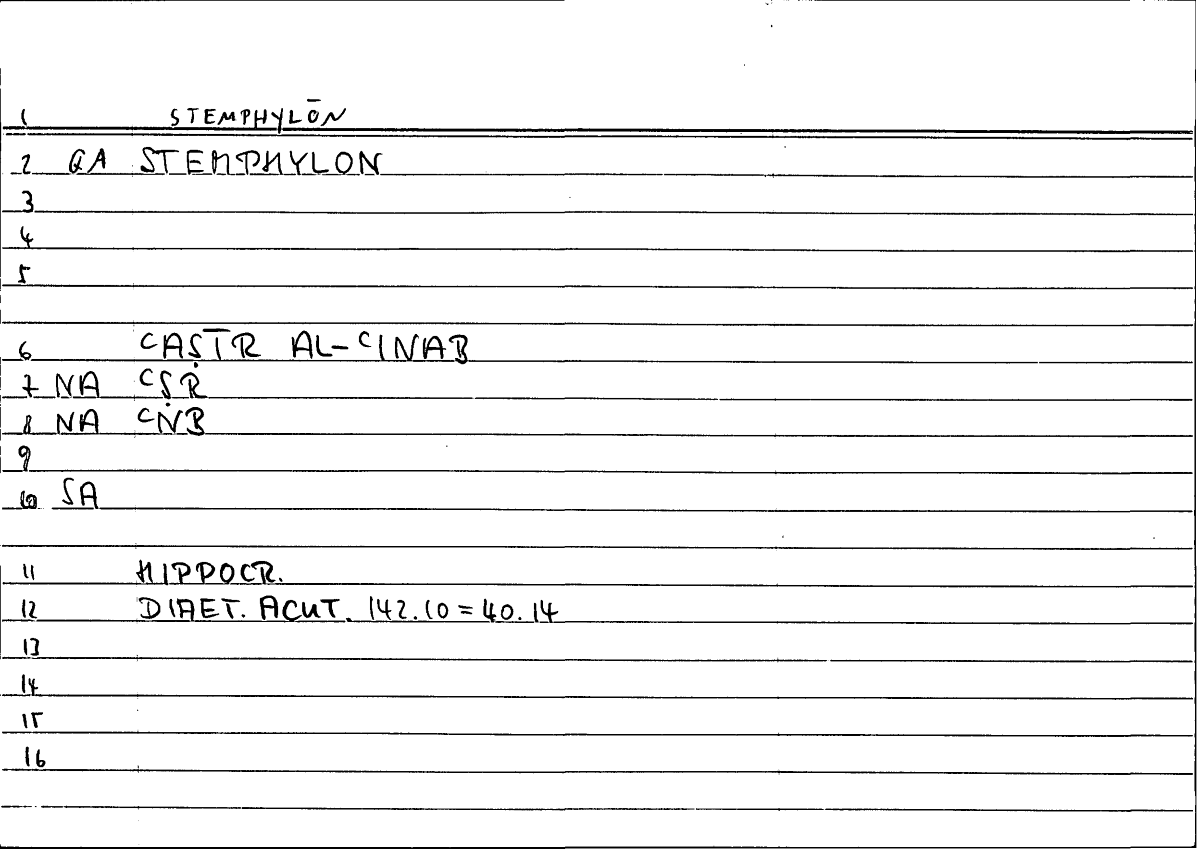 1 STEMPHYLŌN
2 QA STEMPHYLON
3
4
5
6 ᶜAṢĪR AL-ᶜINAB
7 NA ᶜṢR
8 NA ᶜNB
9
10 SA
11 HIPPOCR.
12 DIAET. ACUT. 142.10 = 40.14
13
14
15
16